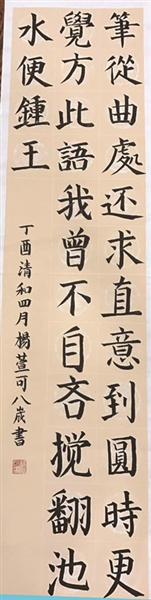 筆從曲處还求直意到圓時更
覺方此語我曾不自吝搅翻池
水便鍾王
丁酉清和四月楊萱可八歲書